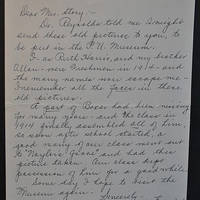 Dear Mr. Story:-
Dr. Reynolds told me I might
send these old pictures to you, to
be put in the P.U. Museum.
I - as Ruth Harris, and my brother
Allan - were Freshmen in 1914 - and
tho many names now escape me -
I remember all the faces in these
old pictures.
A part of Boaz had been missing
for many years - and the class in
1914 finally assembled all of him.
So soon after school started, a
good many of our class mates went
to Naylor's and had this
picture taken. Our class kept
possession of him for a good while.
Some day I hope to visit the
Museum again -
Sincerely